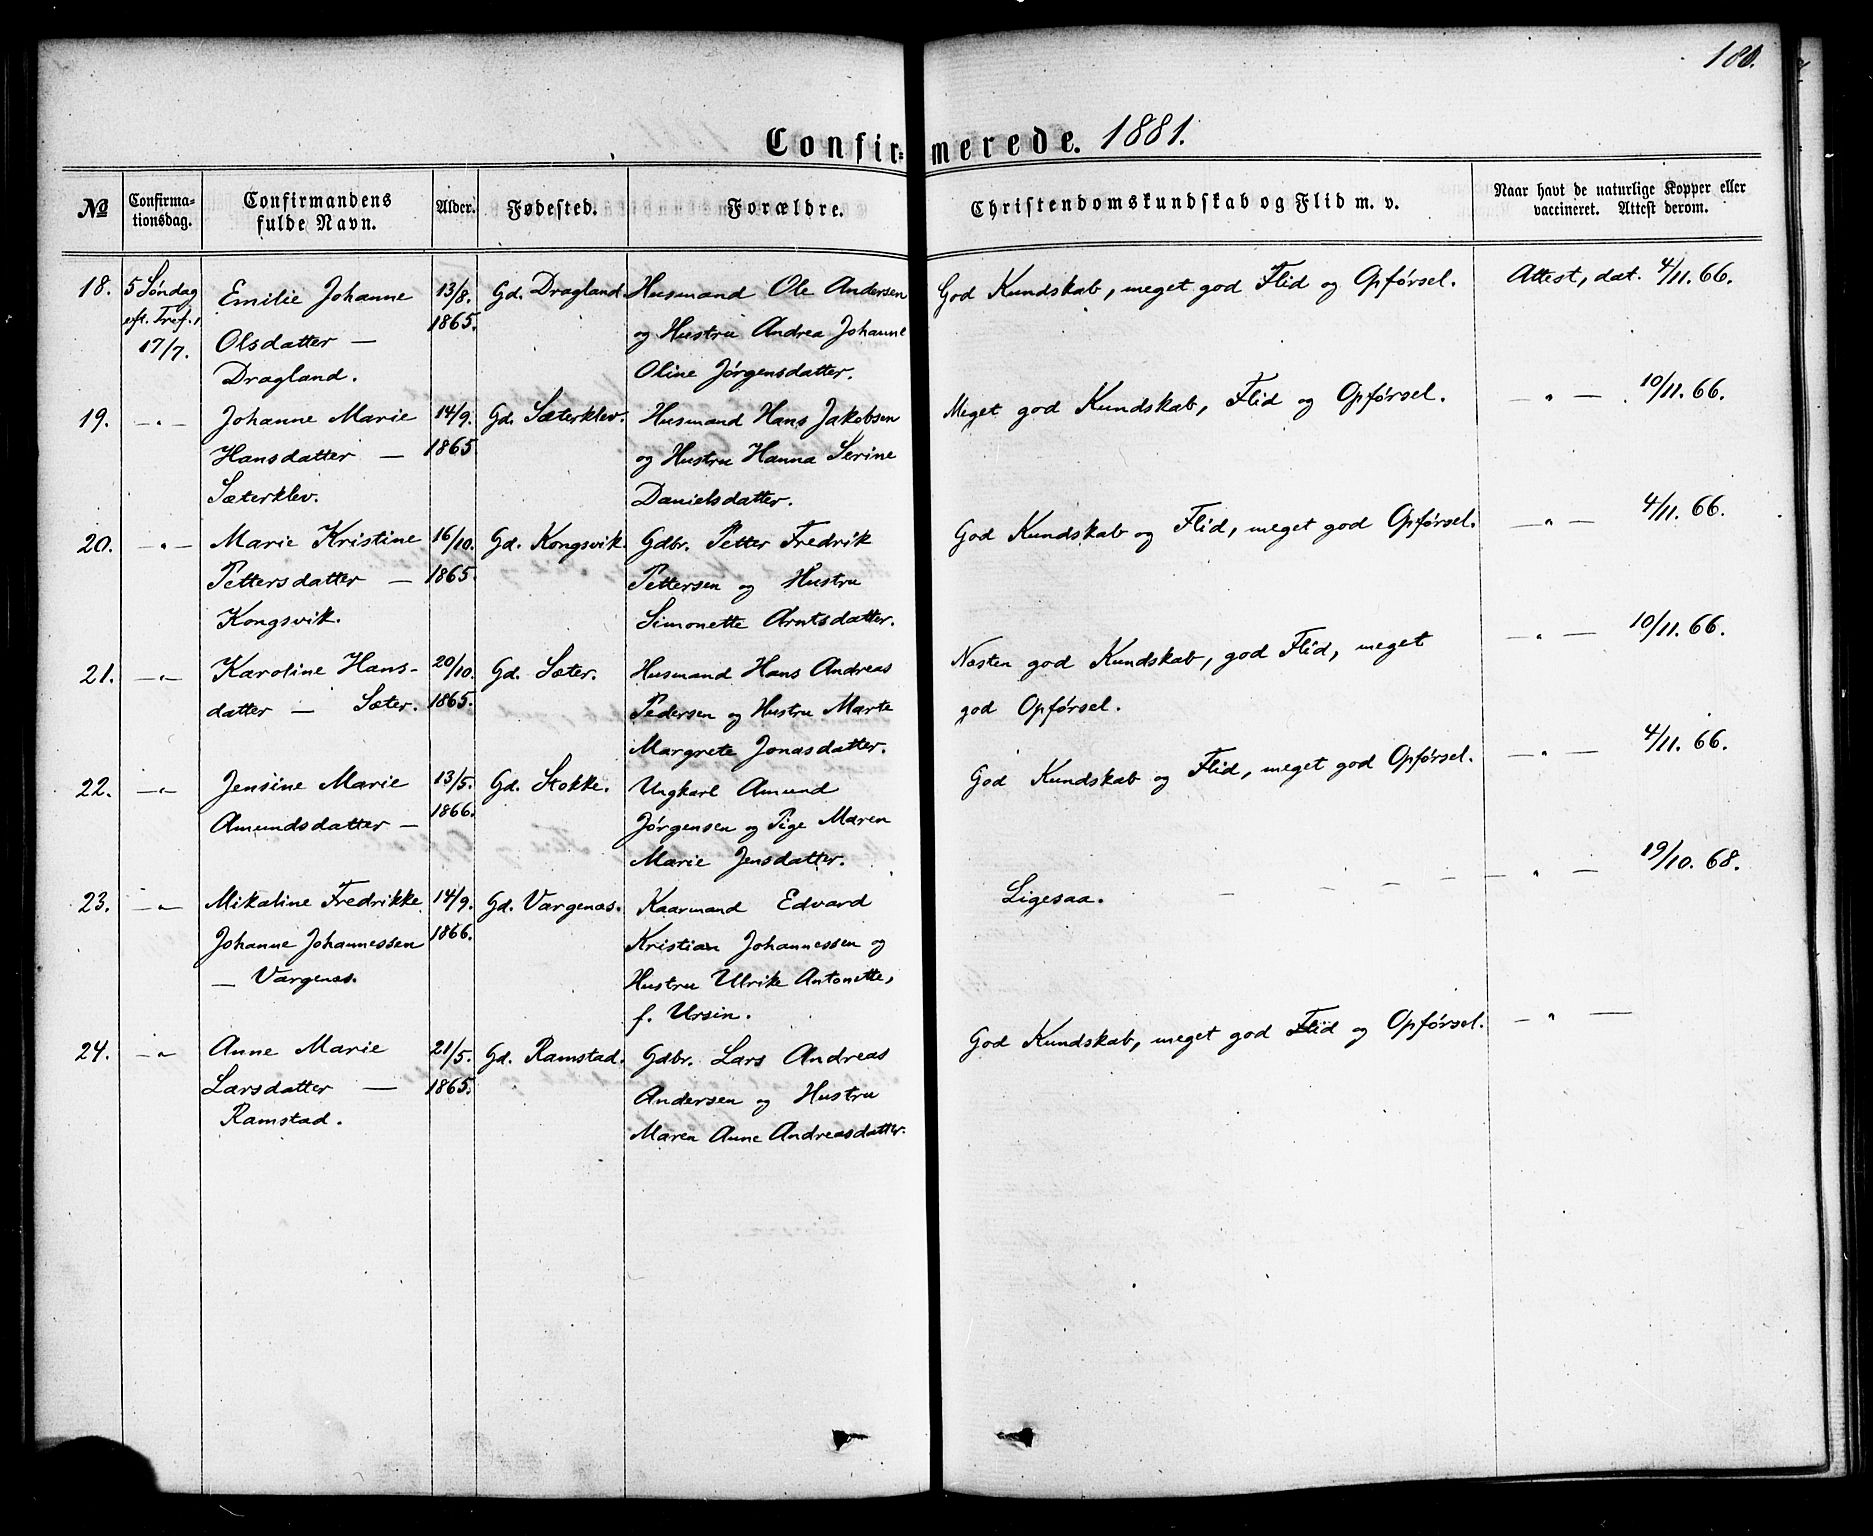 180.
Confirmerede. 1881.
№ Confirmationsdag. Confirmandens fulde Navn. Alder. Fødested. Forældre. Christendomskundskab og Flid m. v. Naar havt de naturlige Kopper eller vaccineret. Attest derom.
18. 5 Søndag Emilie Johanne 13/8. Gd. Dragland Husmand Ole Andersen God Kundskab, meget god Flid og Opførsel. Attest, dat. 4/11. 66.
eft. Tref., Olsdatter — 1865. og Hustru Andrea Johanne
17/7. Dragland. Oline Jørgensdatter.
19. —„— Johanne Marie 14/9. Gd. Sæterklev. Husmand Hans Jakobsen Meget god Kundskab, Flid og Opførsel. —„— 10/11. 66.
Hansdatter — 1865 og Hustru Hanna Serine
Sæterklev. Danielsdatter.
20. —„— Marie Kristine 16/10. Gd. Kongsvik. Gdbr. Petter Fredrik God Kundskab og Flid, meget god Opførsel. —„— 4/11. 66.
Pettersdatter — 1865. Pettersen og Hustru
Kongsvik. Simonette Arntsdatter.
21. —„— Karoline Hans- 20/10. Gd. Sæter. Husmand Hans Andreas Næsten god Kundskab, god Flid, meget —„— 10/11. 66.
datter — Sæter. 1865. Pedersen og Hustru Marte god Opførsel.
Margrete Jonasdatter.
22. —„— Jensine Marie 13/5. Gd. Stokke. Ungkarl Amund God Kundskab og Flid, meget god Opførsel. —„— 4/11. 66.
Amundsdatter — 1866. Jørgensen og Pige Maren
Marie Jensdatter.
23. —„— Mikaline Fredrikke 14/9. Gd. Vargenæs. Kaarmand Edvard Ligesaa. — — — — —„— 19/10. 68.
Johanne Johannessen 1866. Kristian Johannessen og
— Vargenæs. Hustru Ulrike Antonette,
f. Ursin.
24. —„— Anne Marie 21/5. Gd. Ramstad. Gdbr. Lars Andreas God Kundskab, meget god Flid og Opførsel. —„—
Larsdatter — 1865. Andersen og Hustru
Ramstad. Maren Anne Andreasdatter.